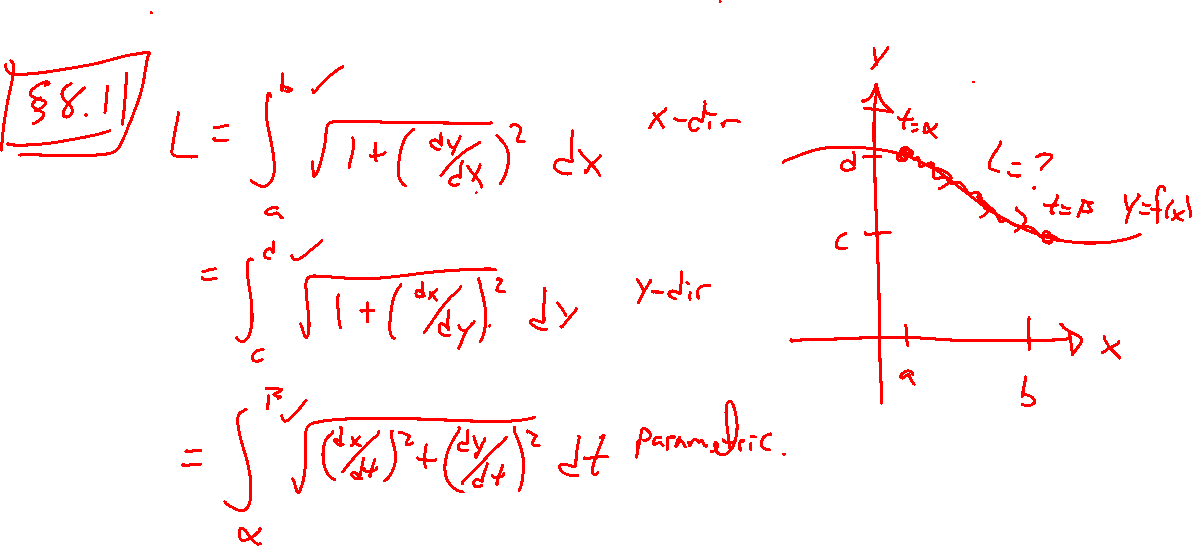 §8.1
L = ∫_a^b √(1 + (dy/dx)²) dx x-dir
= ∫_c^d √(1 + (dx/dy)²) dy y-dir
= ∫_α^β √((dx/dt)² + (dy/dt)²) dt parametric.
y
t=α
d
L=?
t=β y=f(x)
c
x
a
b